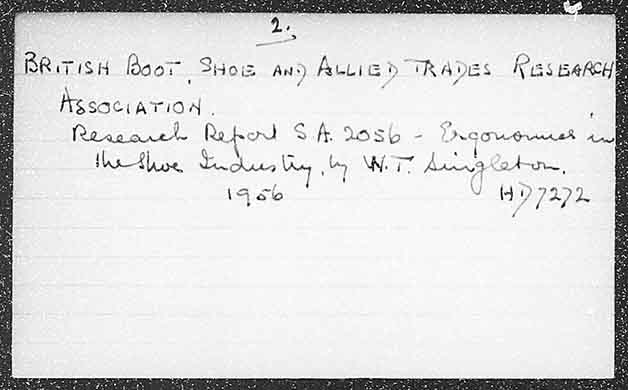 2.
BRITISH BOOT, SHOE AND ALLIED TRADES RESEARCH
ASSOCIATION.
Research Report S.A. 2056 - Ergonomics in
the Shoe Industry, by W.T. Singleton.
1956 HD7272